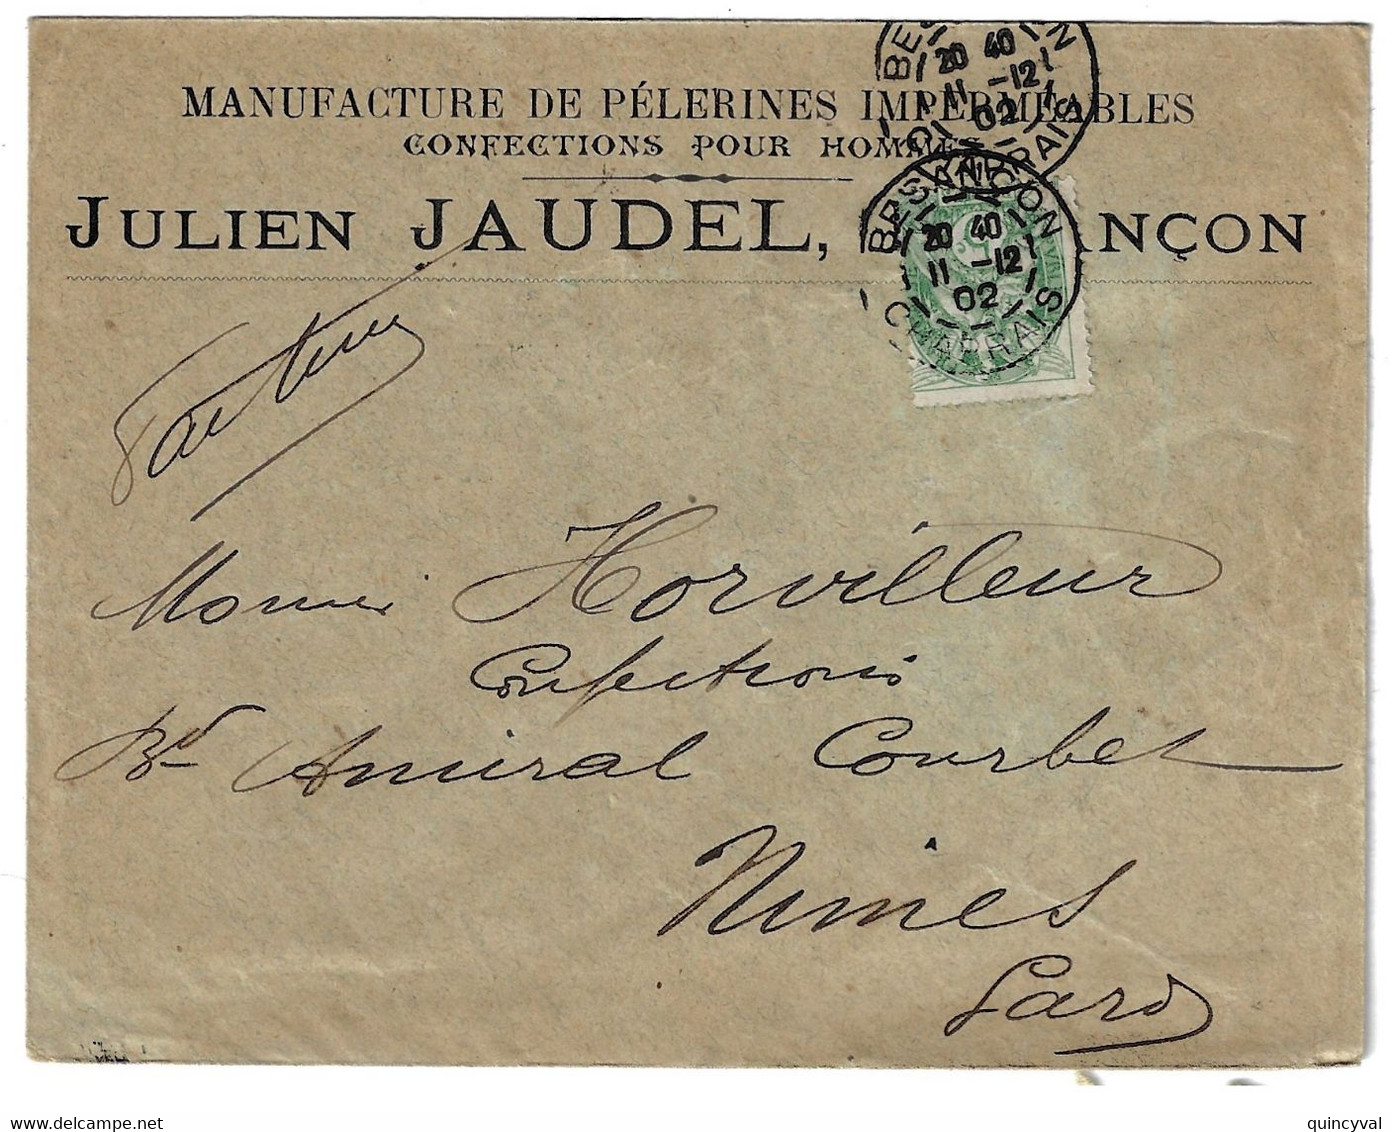 MANUFACTURE DE PÉLERINES IMPERMEABLES
CONFECTIONS POUR HOMMES
JULIEN JAUDEL, BESANÇON
BESANÇON
20 40
11 -12
02
CHAPRAIS
BESANÇON
20 40
11 -12
02
CHAPRAIS
Facture
Monsieur Horvilleur
Confections
Bd Amiral Courbet
Nimes
Gard
delcampe.net
quincyval